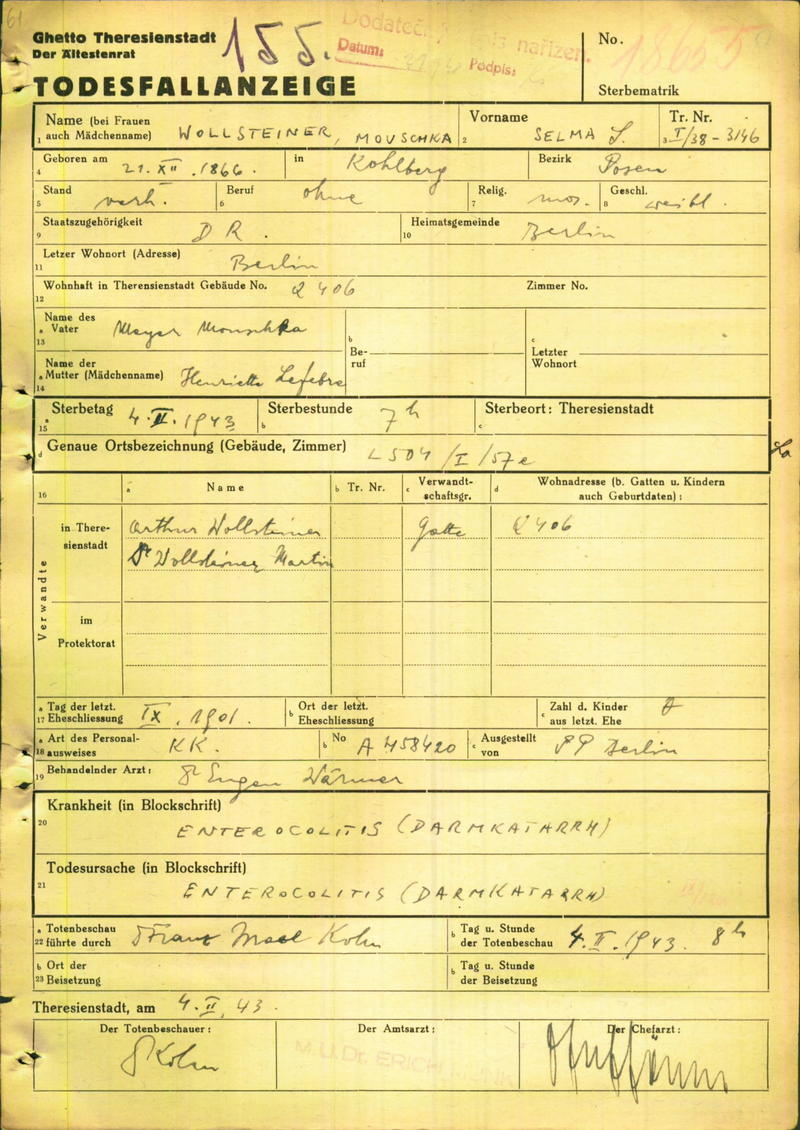 Ghetto Theresienstadt
Der Ältestenrat
155.
Datum:
Podpis:
No.
TODESFALLANZEIGE
Sterbematrik
Name (bei Frauen auch Mädchenname) WOLLSTEINER, MOUSCHKA
Vorname SELMA S.
Tr. Nr. I/38-3146
1 2 3
Geboren am 21. XII. 1866. in Kohlberg Bezirk Posen
4
Stand verh. Beruf ohne Relig. mos. Geschl. weibl.
5 6 7 8
Staatszugehörigkeit D R. Heimatsgemeinde Berlin
9 10
Letzer Wohnort (Adresse) Berlin
11
Wohnhaft in Theresienstadt Gebäude No. Q 406 Zimmer No.
12
Name des
a Vater Meyer Mouschka
13
b Beruf
c Letzter Wohnort
Name der
a Mutter (Mädchenname) Henriette Lefebre
14
a Sterbetag 4. II. 1943 b Sterbestunde 7h c Sterbeort: Theresienstadt
15
d Genaue Ortsbezeichnung (Gebäude, Zimmer) L 504/I/57e
16 a Name b Tr. Nr. c Verwandtschaftsgr. d Wohnadresse (b. Gatten u. Kindern auch Geburtdaten):
Verwandte
in Theresienstadt
Arthur Wollsteiner Gatte Q 406
Dr Wollsteiner Martin
im Protektorat
a Tag der letzt.
17 Eheschliessung IX. 1901.
b Ort der letzt. Eheschliessung
c Zahl d. Kinder aus letzt. Ehe
a Art des Personal-
18 ausweises KK.
b No A 458420
c Ausgestellt von PP Berlin
19 Behandelnder Arzt: Dr Eugen Wärmer
Krankheit (in Blockschrift)
20 ENTEROCOLITIS (DARMKATARRH)
Todesursache (in Blockschrift)
21 ENTEROCOLITIS (DARMKATARRH)
a Totenbeschau
22 führte durch Dr Franz Kohn
b Tag u. Stunde der Totenbeschau 4. II. 1943. 8h
b Ort der
23 Beisetzung
b Tag u. Stunde der Beisetzung
Theresienstadt, am 4. II. 43.
Der Totenbeschauer: Der Amtsarzt: Der Chefarzt:
Dr Kohn
M.U.Dr. ERICH MUNK